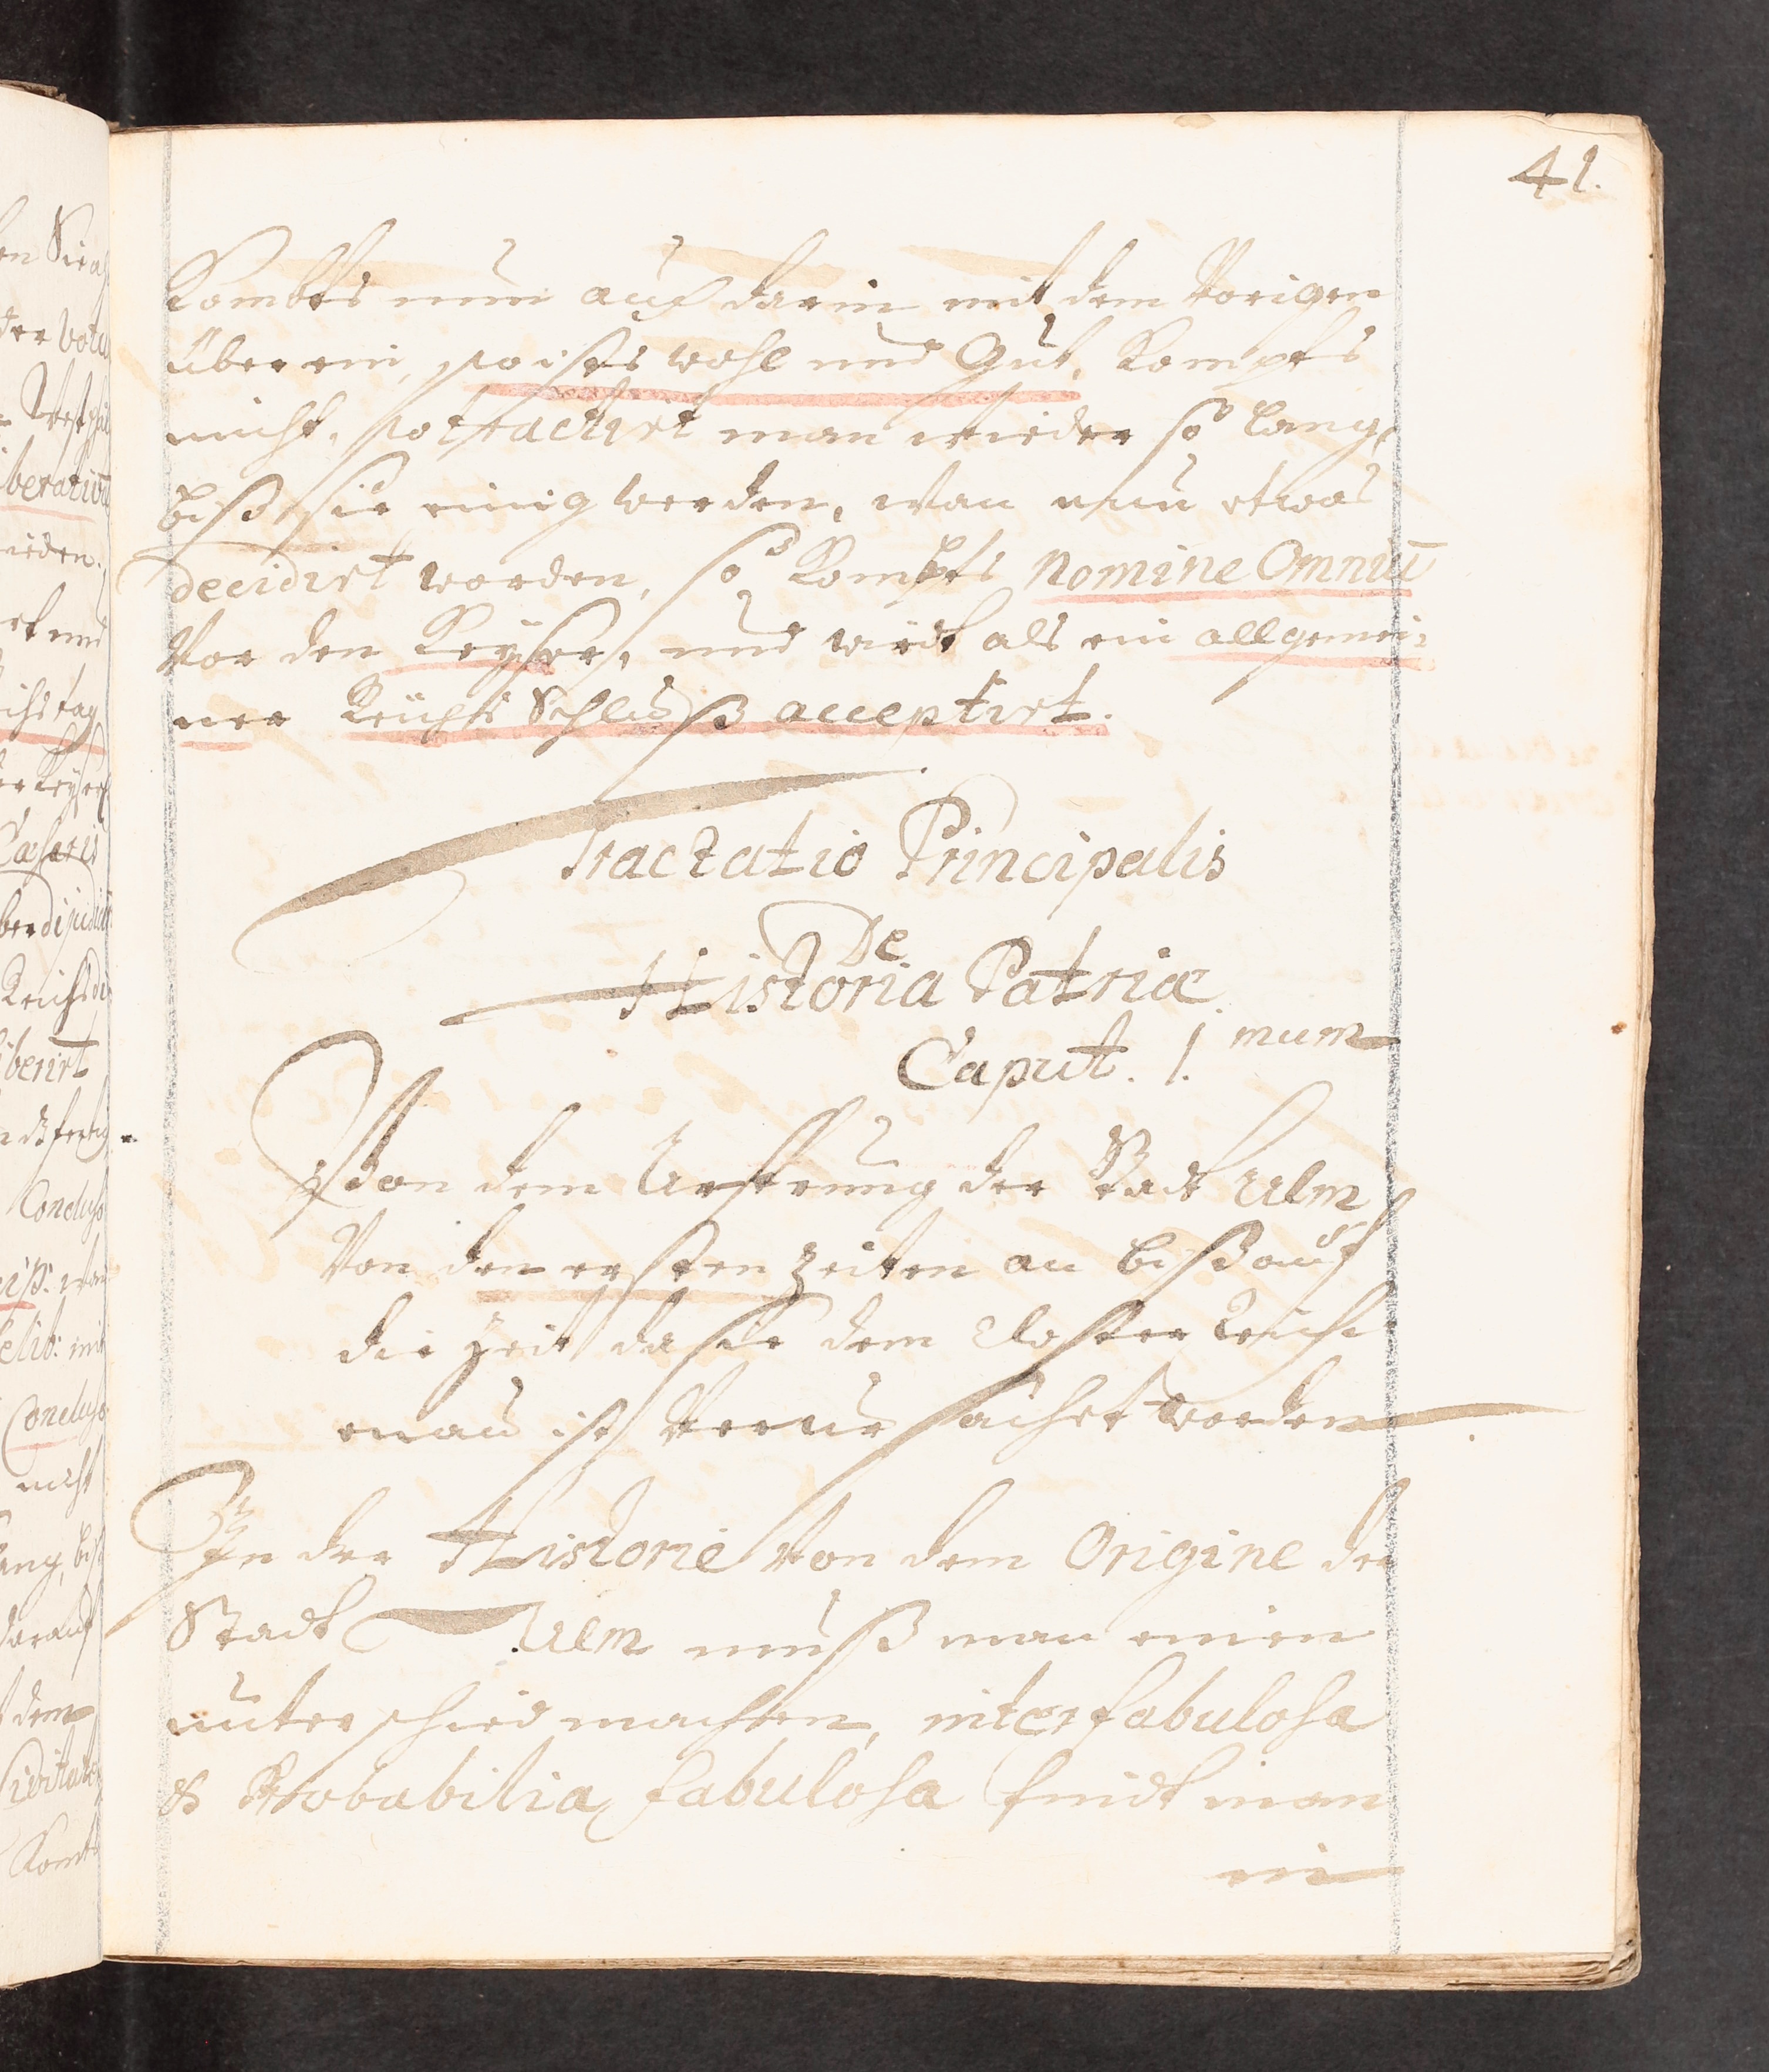 41.
Kombts nun auch darin mit dem Vorigen
überein, so ists wohl und Gut, Kompts
nicht, so tractirt man wieder so lang,
biß sie einig werden, wan nun etwas
decidirt worden, so Kompts Nomine Omniū
Vor den Keyser, und wirdt als ein allgemei:
ner Reichs Schluß acceptirt.
Tractatio Principalis
De
Historia Patriæ.
Caput. 1.mum
Von dem Ursprung der Stadt Ulm
Von den ersten Zeiten an biß auf
die Zeit da sie dem Closter Reiche
nau ist worden
In der Historie von dem Origine der
Stadt Ulm muß man einen
unterschied machen, inter fabulosa
& Probabilia, fabulosa findt man
in